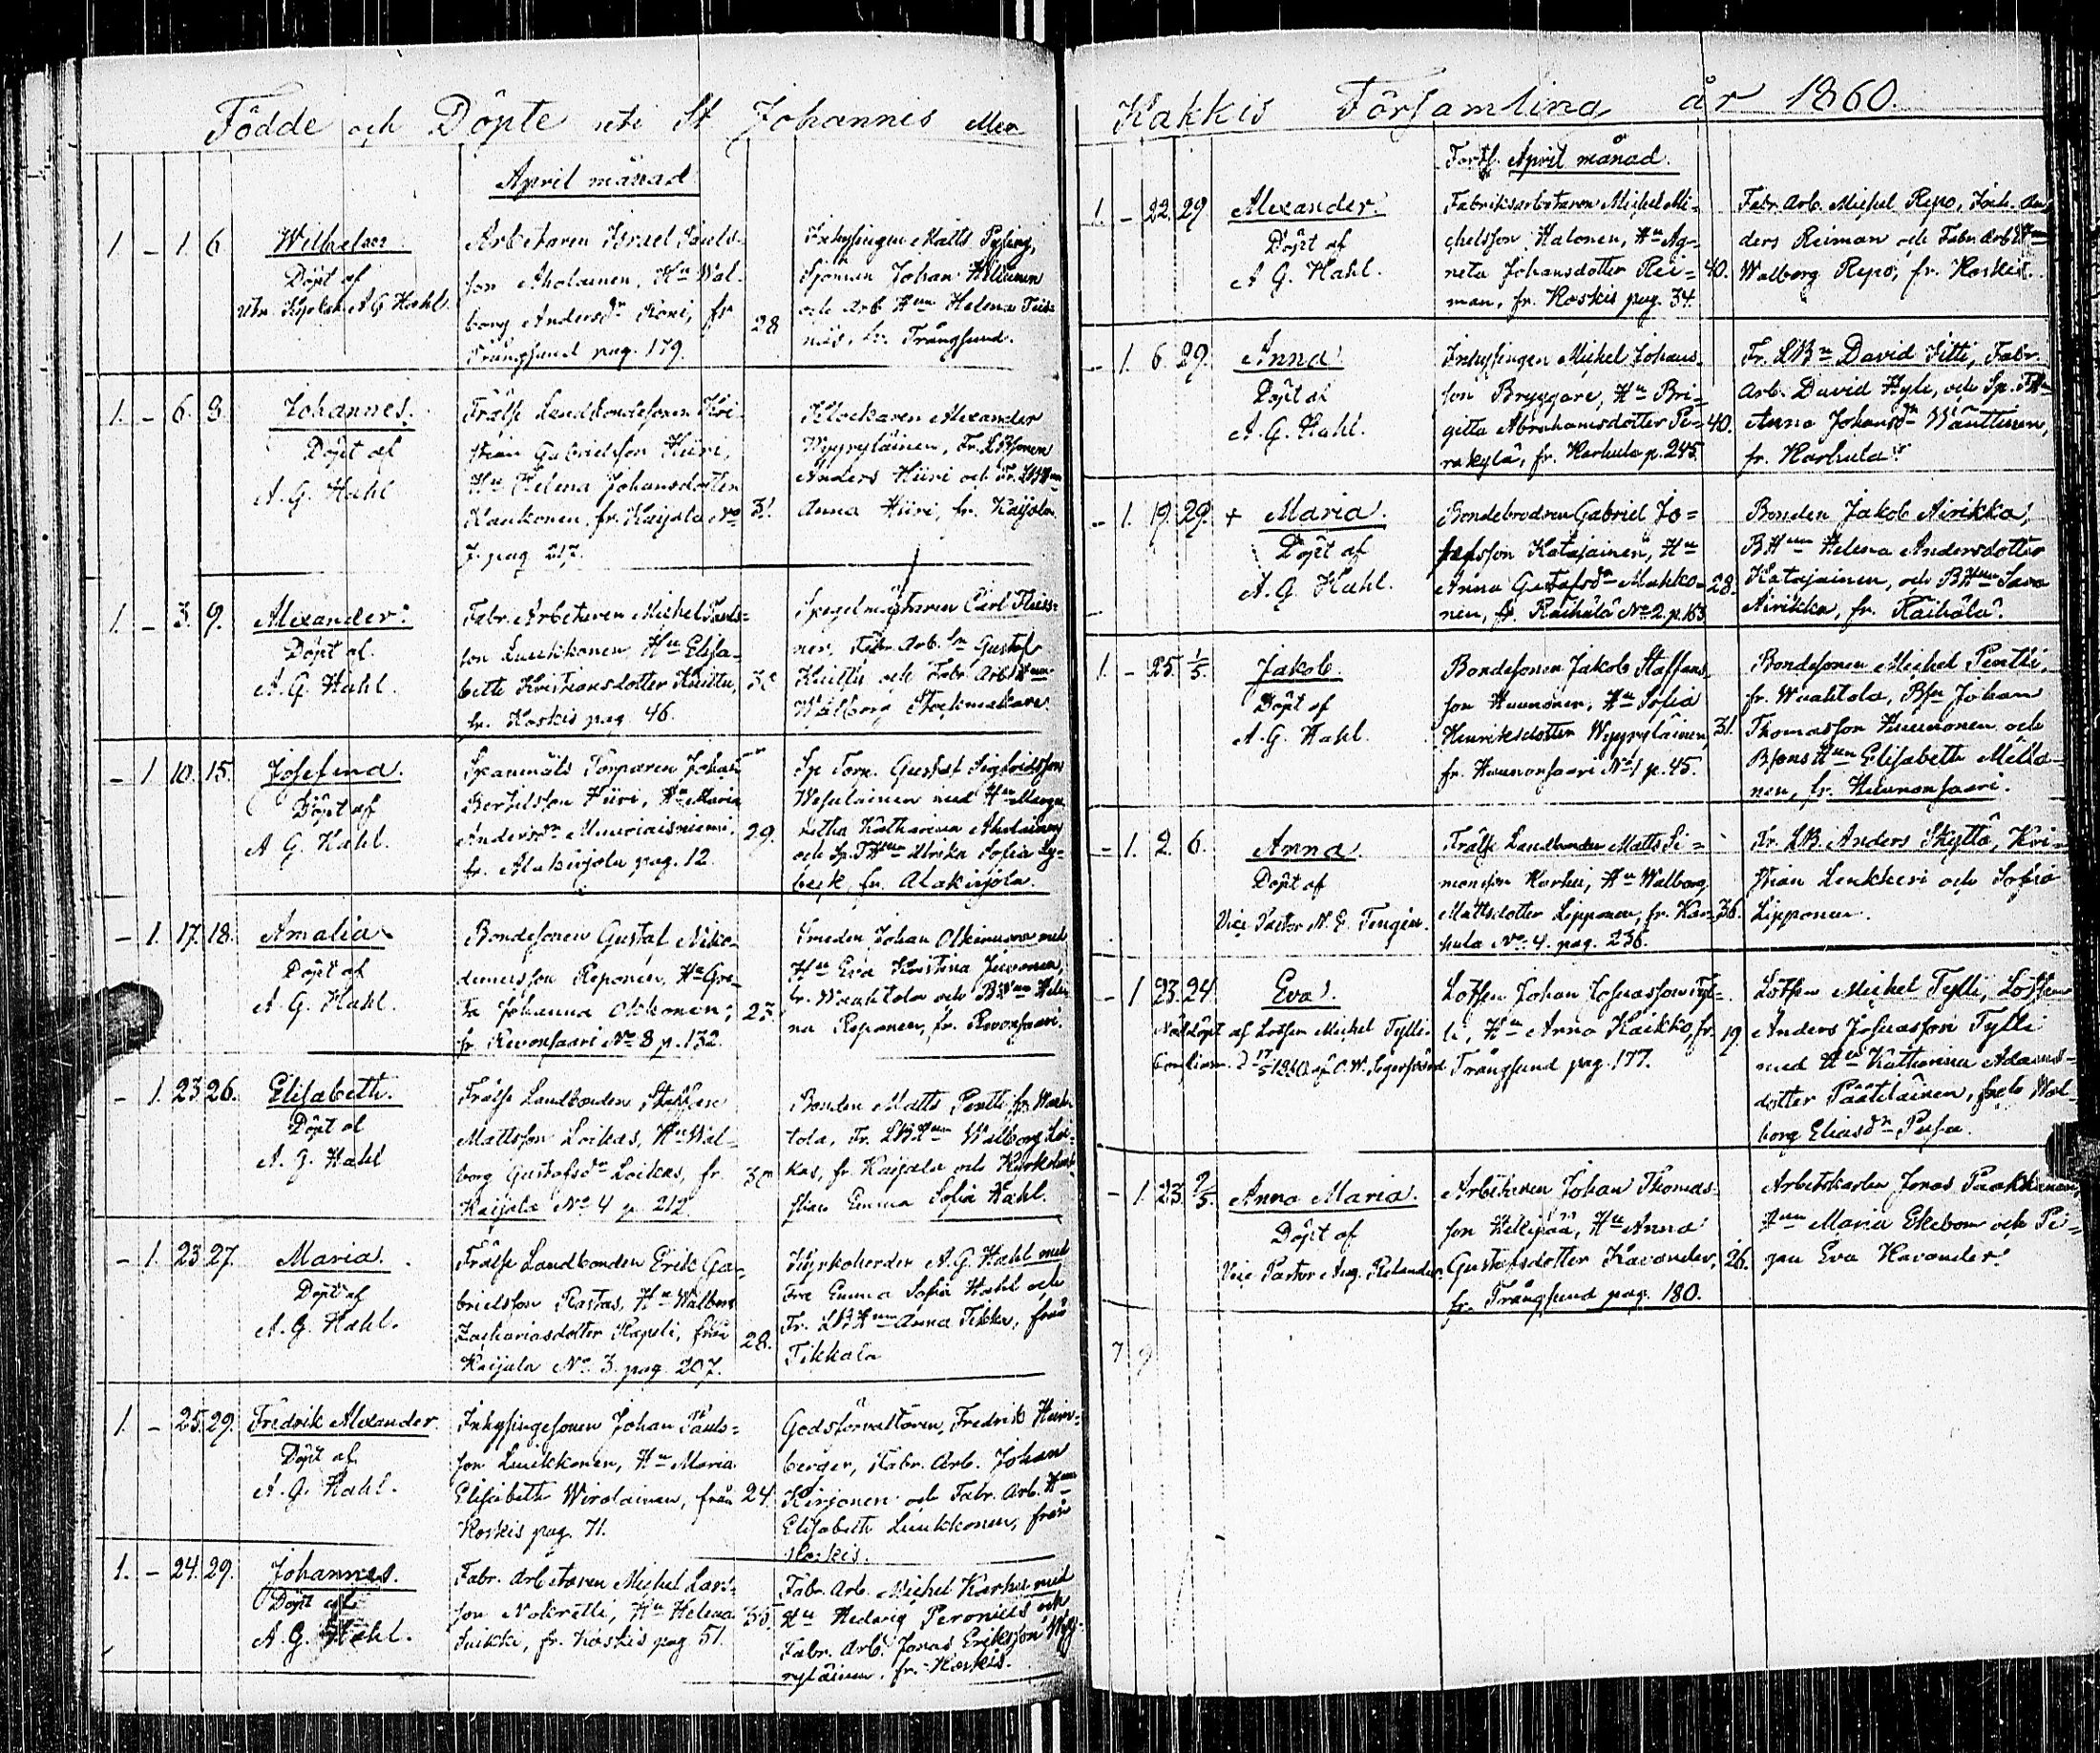 Födde och Döpte uti St Johannis
April månad
1. – 1. 6. Wilhelm
Döpt af
A G Hahl.
Arbetaren Israel Paulsson
Aholainen, Hu Walborg
Andersdr Koni, fr
Trångsund pag. 179.
28
Inhysingen Matts Pysing,
Sjöman Johan
och Arb Hun Helena
fr. Trångsund.
1. – 6. 8. Johannes.
Döpt af
A. G. Hahl
Frälse Landbondesonen Kri-
stian Gabrielsson Hiiri,
Hu Helena Johansdotter
Kaukonen, fr. Kaijala No
7. pag 217.
31.
Klockaren Alexander
Wyyryläinen, Fr. LBsonen
Anders Hiiri och Fr. LBHun
Anna Hiiri, fr. Kaijala
1. – 3. 9. Alexander.
Döpt af
A. G. Hahl.
Fabr. Arbetaren Michel Pauls-
son Luukkonen, Hu Elisa-
beth Kristiansdotter Kuittu,
fr. Koskis pag. 46.
Spegelmästaren Carl
Fabr. Arb. Gustaf
Kuittu och Fabr Arb Hun
Walborg Stockmakare.
– 1. 10. 15. Josefina.
Döpt af
A G. Hahl.
Spanmåls Torparen Johan
Bertilsson Hiiri, Hu Maria
Andersdr
fr. Alakirjola pag. 12.
29.
Sp Torp. Gustaf Sigfridsson
Wesulainen med Hu Marga-
retha Katharina Aholainen
och Sp. T Hun Ulrika Sofia Ly-
beck, fr. Alakirjola.
– 1. 17. 18. Amalia
Döpt af
A. G. Hahl.
Bondesonen Gustaf Niko-
demusson Reponen, Hu Gre-
ta Johanna Olkkonen,
fr. Revonsaari No 8 p. 132.
27.
Smeden Johan Olkinuora med
Hu Eva Kristina Juvonen,
fr. Waahtola och BHun Hele-
na Reponen, fr. Revonsaari.
– 1. 23 26. Elisabeth.
Döpt af
A. G. Hahl
Frälse Landbonden Staffan
Mattsson Loikas, Hu Wal-
borg Gustafsdr Loikas, fr.
Kaijala No 4 p. 212.
Bonden Matts Pentti fr Waah-
tola, Fr. LBHun Walborg Loi-
kas, fr. Kaijala och
Emma Sofia Hahl.
– 1. 23 27. Maria.
Döpt af
A. G. Hahl.
Frälse Landbonden Erik Ga-
brielsson Rastas, Hu Walborg
Zachariasdotter Kapeli, från
Kaijala No. 3. pag. 207.
28.
Kyrkoherden A. G. Hahl med
Fru Emma Sofia Hahl och
Fr. LBHun Anna Tikka, från
Tikkala
1. – 25. 29. Fredrik Alexander.
Döpt af
A. G. Hahl.
Inhysingesonen Johan Pauls-
son Luukkonen, Hu Maria
Elisabeth Wirolainen, från
Koskis pag. 71.
24.
Godsförvaltaren, Fredrik Heim-
berger, Fabr. Arb. Johan
Kirjonen och Fabr. Arb. Hun
Elisabeth Luukkonen, från
Koskis.
1. – 24. 29. Johannes.
Döpt af
A. G. Hahl.
Fabr. Arbetaren Michel Lars-
son Nokretti, Hu Helena
Suikki, fr. Koskis pag 51.
35
Fabr. Arb. Michel Karhu med
Hu Hedvig Peronius och
Fabr. Arb. Jonas Eriksson Wyy-
ryläinen, fr. Koskis.
Kakkis Församling år 1860.
Forts. April månad.
1. – 22. 29 Alexander.
Döpt af
A G. Hahl.
Fabriksarbetaren Michel Mi-
chelsson Halonen, Hu Ag-
neta Johansdotter Rei-
man, fr. Koskis pag. 34.
40.
Fabr. Arb. Michel Repo, An-
ders Reiman och Fabr Arb Hun
Walborg Repo, fr. Koskis.
– 1. 6. 29. Anna.
Döpt af
A. G. Hahl.
Inhysingen Michel Johans-
son Bryggare, Hu Bri-
gitta Abrahamsdotter Pe-
rakylä, fr. Karhula p. 245.
40.
Fr. LBn David Sitti, Fabr.
Arb. David Hyle, och Sp. THn
Anna Johansdr Wänttinen,
fr. Karhula.
– 1. 19. 29. + Maria.
Döpt af
A. G. Hahl.
Bondebrodren Gabriel Jo-
sefsson Katajainen, Hu
Anna Gustafsdr Mahko-
nen, fr. Räihälä No 2. p. 163
28.
Bonden Jakob Airikka,
BHun Helena Andersdotter
Katajainen, och BHun Sara
Airikka, fr. Räihälä.
1. – 25. 1/5. Jakob.
Döpt af
A. G. Hahl.
Bondesonen Jakob Staffans-
son Huunonen, Hu Sofia
Henriksdotter Wyyryläinen,
fr. Huunonsaari No 1 p. 45.
31.
Bondesonen Michel Pentti,
fr. Waahtola, Bsn Johan
Thomasson Huunonen och
Bsons Hun Elisabeth
nen, fr. Huunonsaari.
– 1. 2. 6. Anna.
Döpt af
Vice Pastor
Frälse Landbonden Matts Si-
monsson Karhu, Hu Walborg
Mattsdotter Lipponen, fr. Kar-
hula No. 4. pag. 236.
36.
Fr. LB. Anders Skyttä, Kri-
stian Leukkeri och Sofia
Lipponen.
– 1 23. 24 Eva.
Nöddöpt af Lotsen Michel Tylli.
Lotsen Johan Josuasson Tyl-
li, Hu Anna Kaikko, fr.
Trångsund pag. 177.
19
Lotsen Michel Tylli, Lotsen
Anders Josuasson Tylli
med Hu Katharina Adams-
dotter Päätiläinen, och Wal-
borg Eliasdr
– 1. 23. 2/5. Anna Maria.
Döpt af
Vice Pastor Aug. Relander.
Arbetaren Johan Thomas-
son Hellipää, Hu Anna
Gustafsdotter Kavander,
fr. Trångsund pag. 180.
26.
Arbetskarlen Jonas Paakkinen,
Hun Maria Ekebom och Pi-
gan Eva Kavander.
7 9